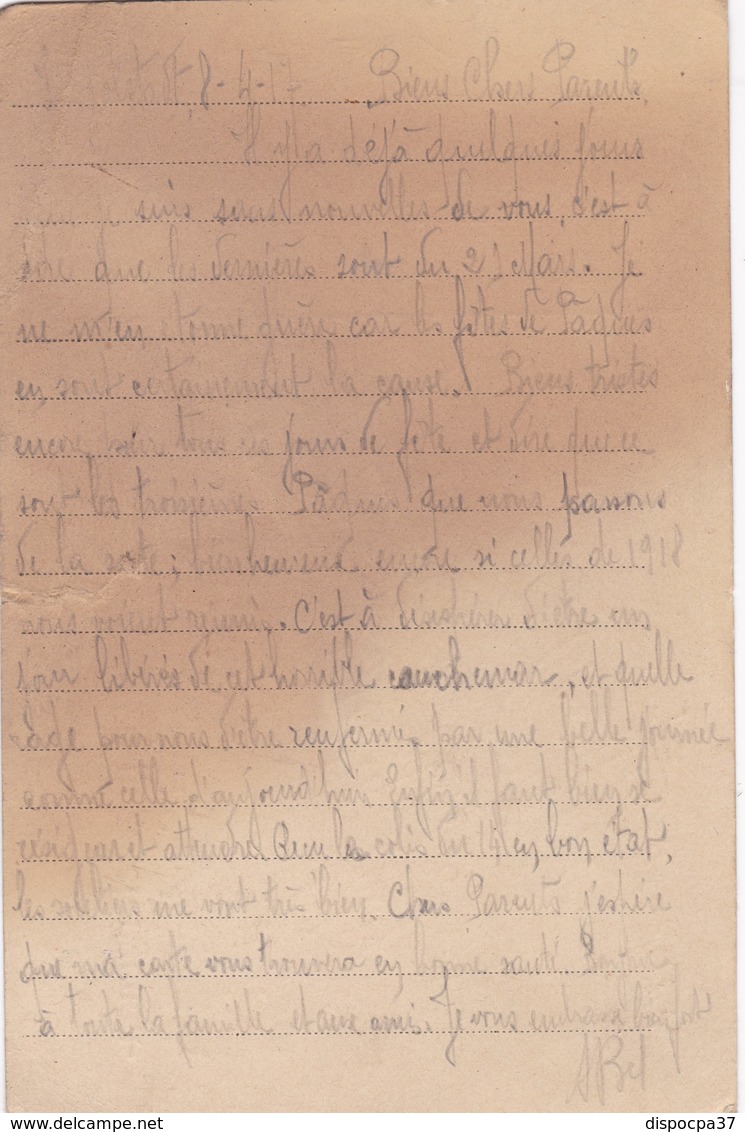 8-4-17. Biens Chers Parents,
Il y a déjà quelques jours
suis sans nouvelles de vous, c'est à
dire que les dernières sont du 21 Mars. Je
ne m'en etonne guère car les fêtes de Pâques
en sont certainement la cause. Biens tristes
encore pour tous ces jours de fête et dire que ce
sont les troisièmes Pâques que nous passons
de la sorte; bienheureux encore si celles de 1918
nous voient réunis. C'est à désespérer d'être un
jour libérés de cet horrible cauchemar, et quelle
rage pour nous d'être renfermé par une belle journée
comme celle d'aujourd'hui. Enfin il faut bien se
résigner et attendre. Reçu le colis du 14 en bon état,
les souliers me vont très bien. Chers Parents j'espère
que ma carte vous trouvera en bonne santé. Bonjour
à toute la famille et aux amis. Je vous embrasse bien fort
ABel
dispocpa37